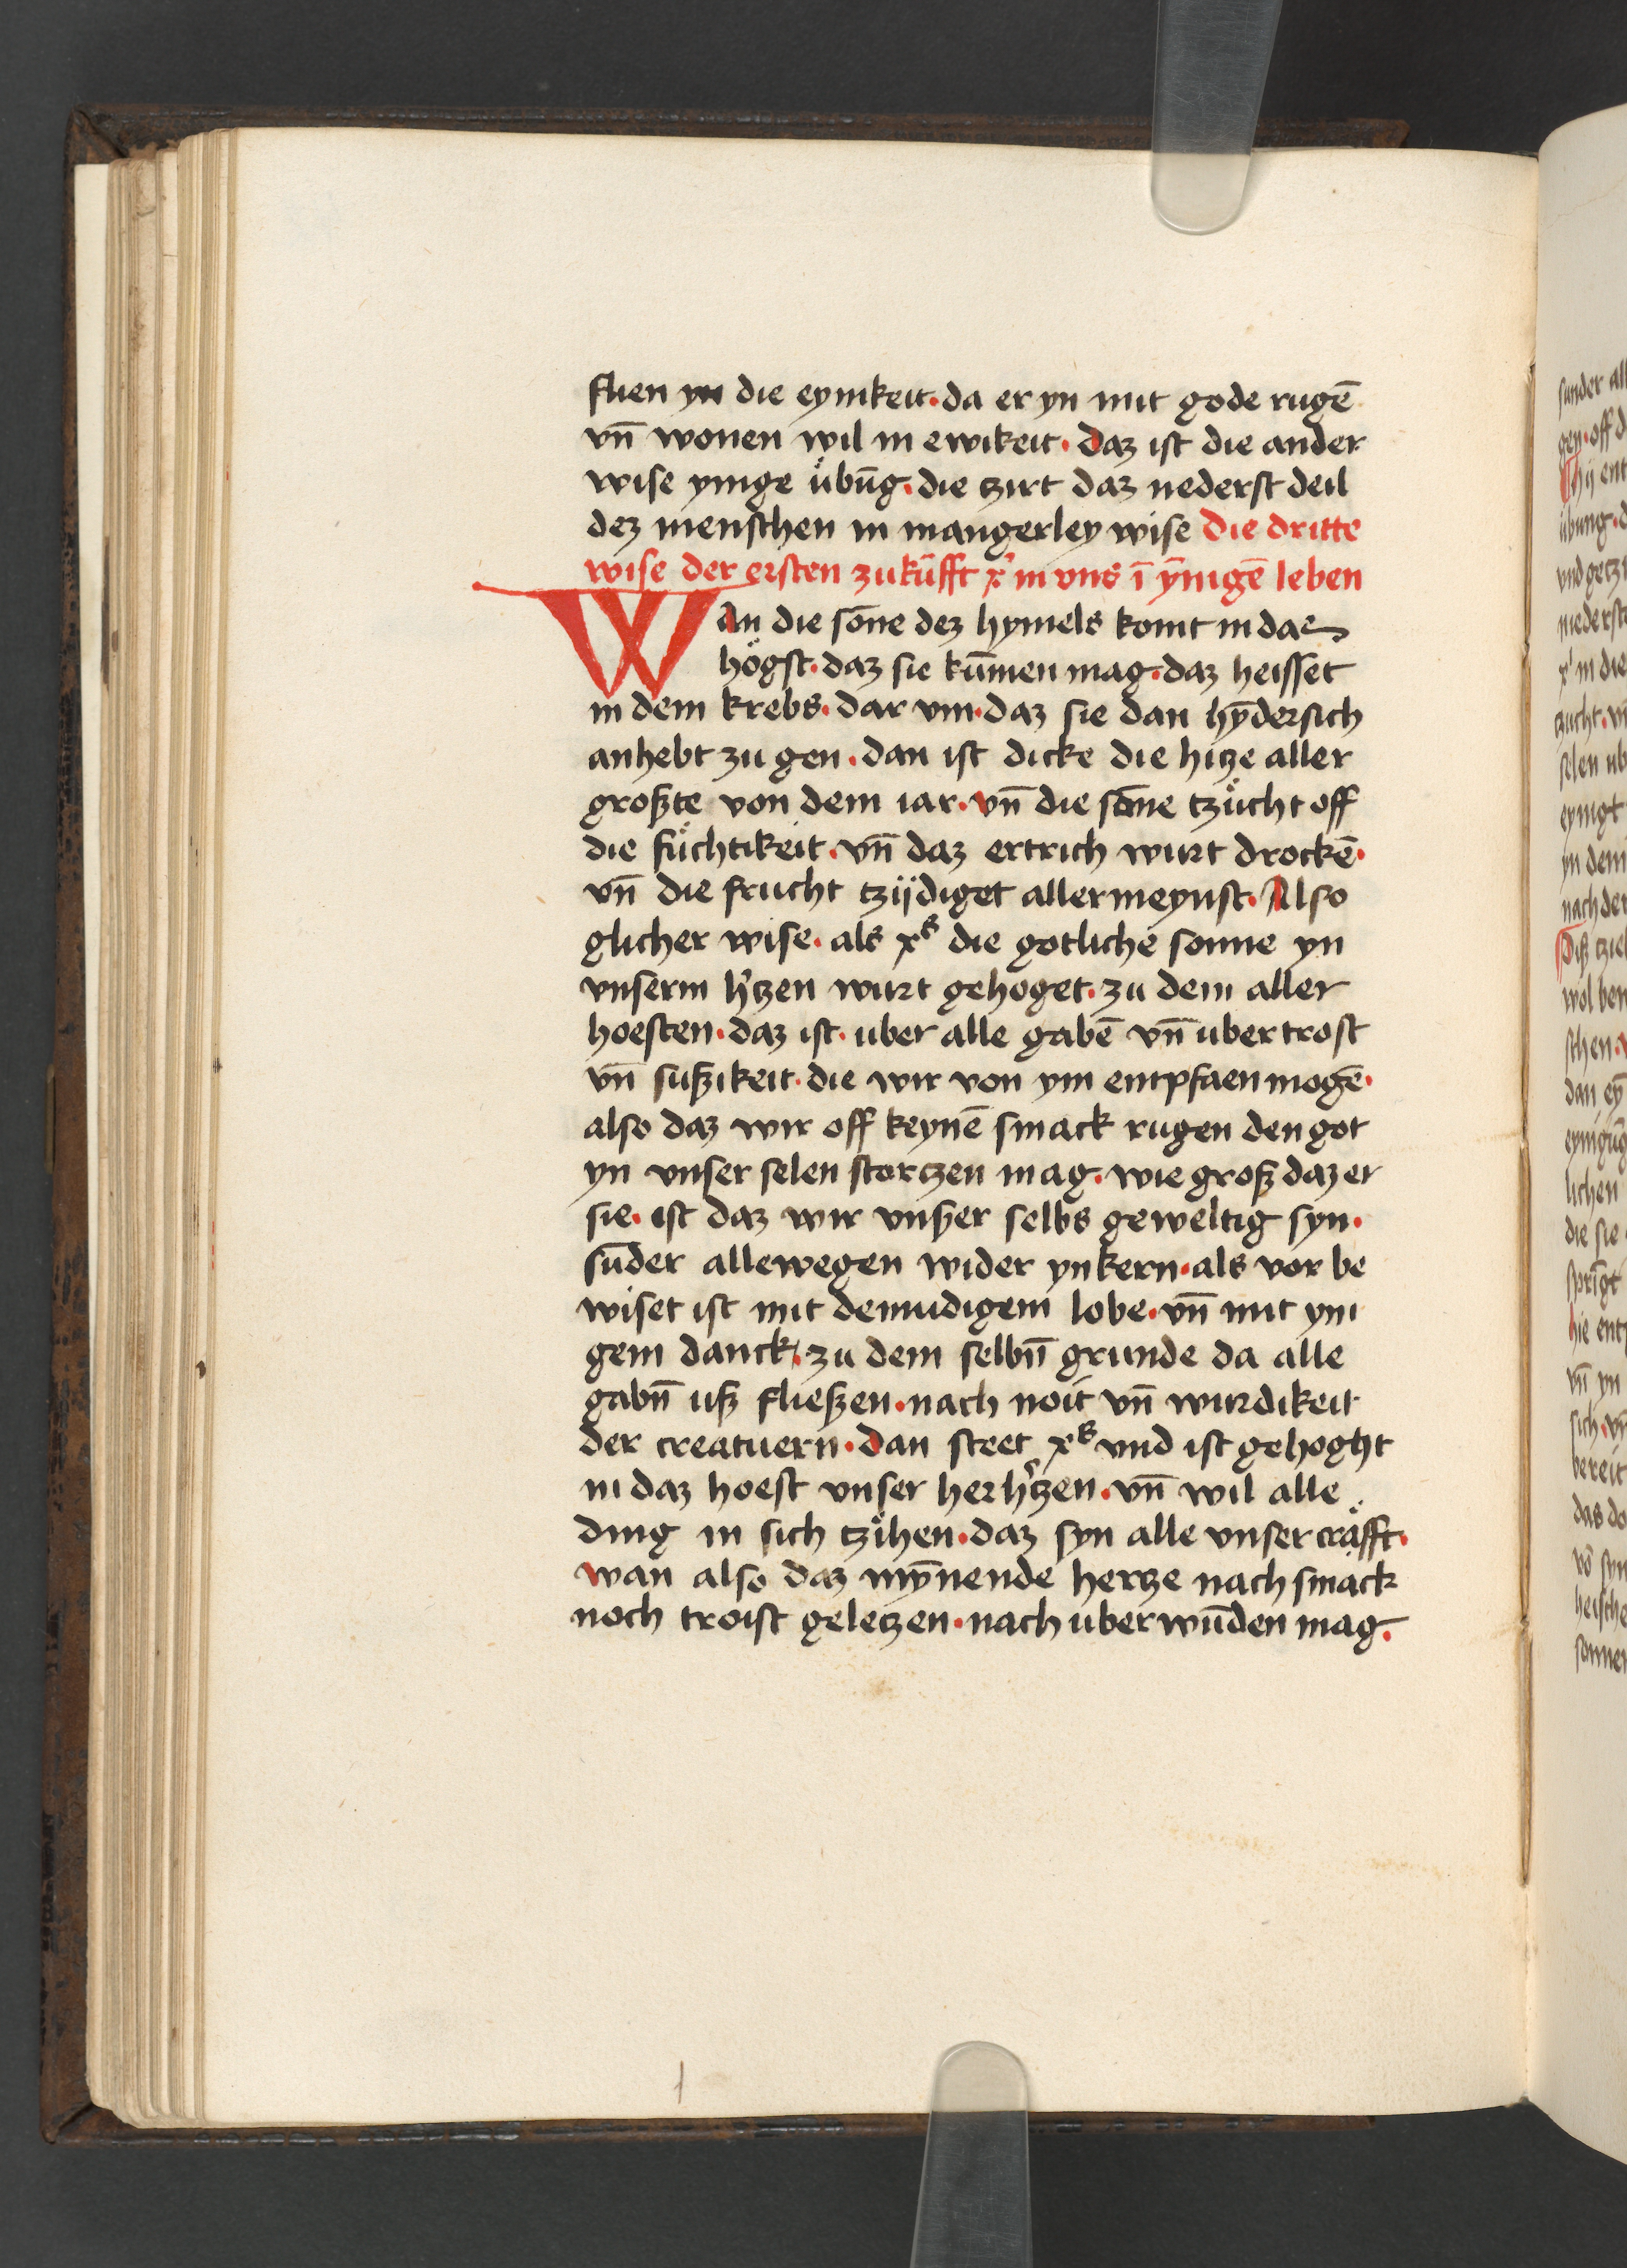 flien yn die eynikeit · da er yn mit gode rugē
vn̄ wonen wil in ewikeit · daz ist die ander
wise ynige u̇būg · die tzirt daz nederst deil
dez menschen in mangerley wise die dritte
wise der ersten zukūfft xͥ in vns ī ȳnigē leben
Wan die sōne dez hymels komt in daz
högst · daz sie kūmen mag · daz heisset
in dem krebs · dar vm · daz sie dan hȳdersich
anhebt zu gen · dan ist dicke die hitze aller
großte von dem iar · vn̄ die sōne tzücht off
die füchtikeit · vn̄ daz ertrich wurt drockē ·
vn̄ die frucht tzijdiget allermeynst · Also
glicher wise · als xˢ die gotliche sonne yn
vnserm h'tzen wurt gehoget · zu dem aller
hoesten · daz ist · uber alle gabē vn̄ uber trost
vn̄ sußikeit · die wir von ym entpfaen mogē ·
also daz wir off keynē smack rugen den got
yn vnser selen stortzen mag · wie groß daz er
sie · ist daz wir vnßer selbs geweltig syn ·
sūder allewegen wider ynkern · als vor be
wiset ist mit demudigem lobe · vn̄ mit yni
gem danck · zu dem selbn̄ grunde da alle
gabn̄ uß fließen · nach noit vn̄ wurdikeit
der creatuern · dan steet xˢ vnd ist gehoght
in daz hoest vnser her h'tzen · vn̄ wil alle
ding in sich tzihen · daz syn alle vnser cräfft ·
wan also daz mȳnende hertze nach smack
noch troist geletzen · nach uberwūden mag ·
sunder all
gen · off d
übung · d
vnd getzi
niederst
xͥ in die
zucht · vn̄
selen ub
eynigt
yn dem
nach der
Diß tziel
wol ben
schen · v
dan ey
lichen
die sie
hie ent
vn̄ yn
sich · vn̄
bereit
das do
vō syn
heische